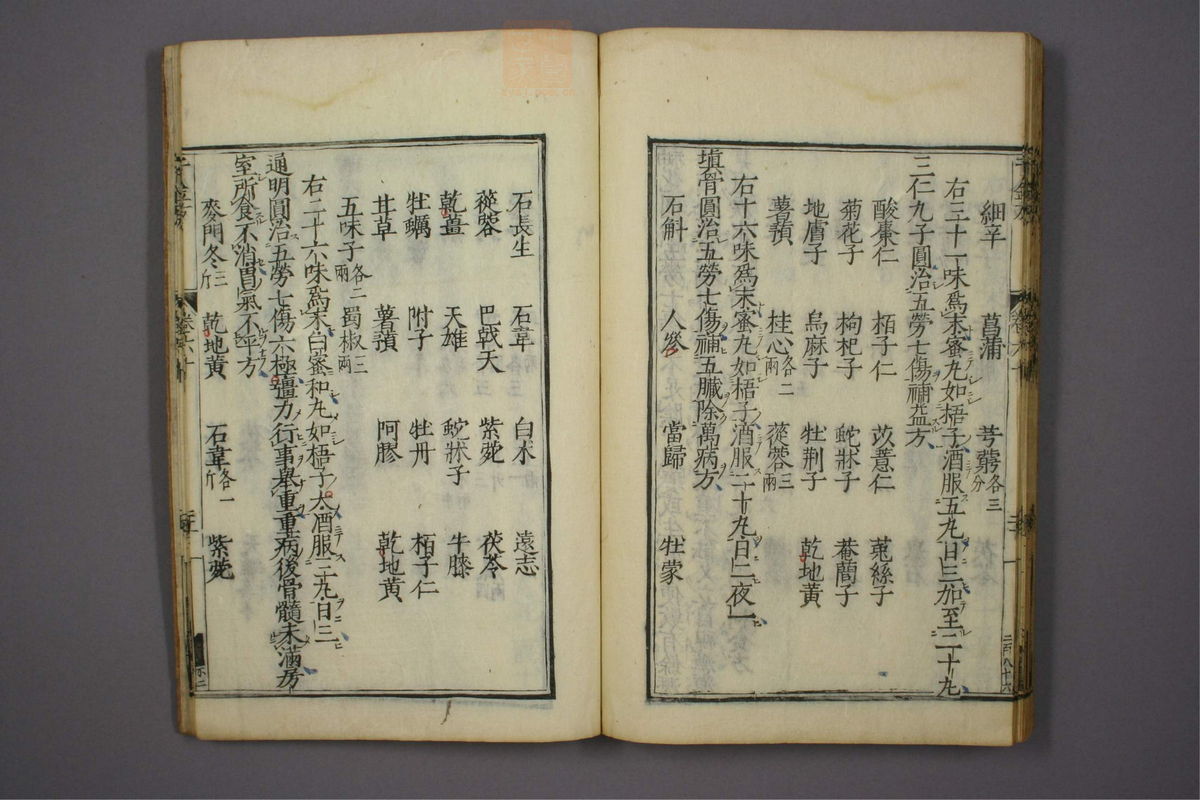 細辛 菖蒲 芎藭各三分
右三十一味爲末蜜丸如梧子酒服五丸日三加至二十九
三仁九子圓治五勞七傷補益方
酸棗仁 栢子仁 苡薏仁 菟絲子
菊花子 枸杞子 蛇牀子 菴䕡子
地膚子 烏麻子 牡荆子 乾地黄
薯蕷 桂心各二兩 蓯蓉三兩
右十六味爲末蜜丸如梧子酒服二十丸日二夜一
填骨圓治五勞七傷補五臟除萬病方
石斛 人參 當歸 牡蒙
石長生 石韋 白朮 遠志
蓯蓉 巴戟天 紫菀 茯苓
乾薑 天雄 蛇牀子 牛膝
牡蠣 附子 牡丹 栢子仁
甘草 薯蕷 阿膠 乾地黄
五味子各二兩 蜀椒三兩
右二十六味爲末白蜜和丸如梧子大酒服三丸日三
通明圓治五勞七傷六極彊力行事舉重重病後骨髓未滿房
室所食不消胃氣不平方
麥門冬三斤 乾地黄 石韋各一斤 紫菀